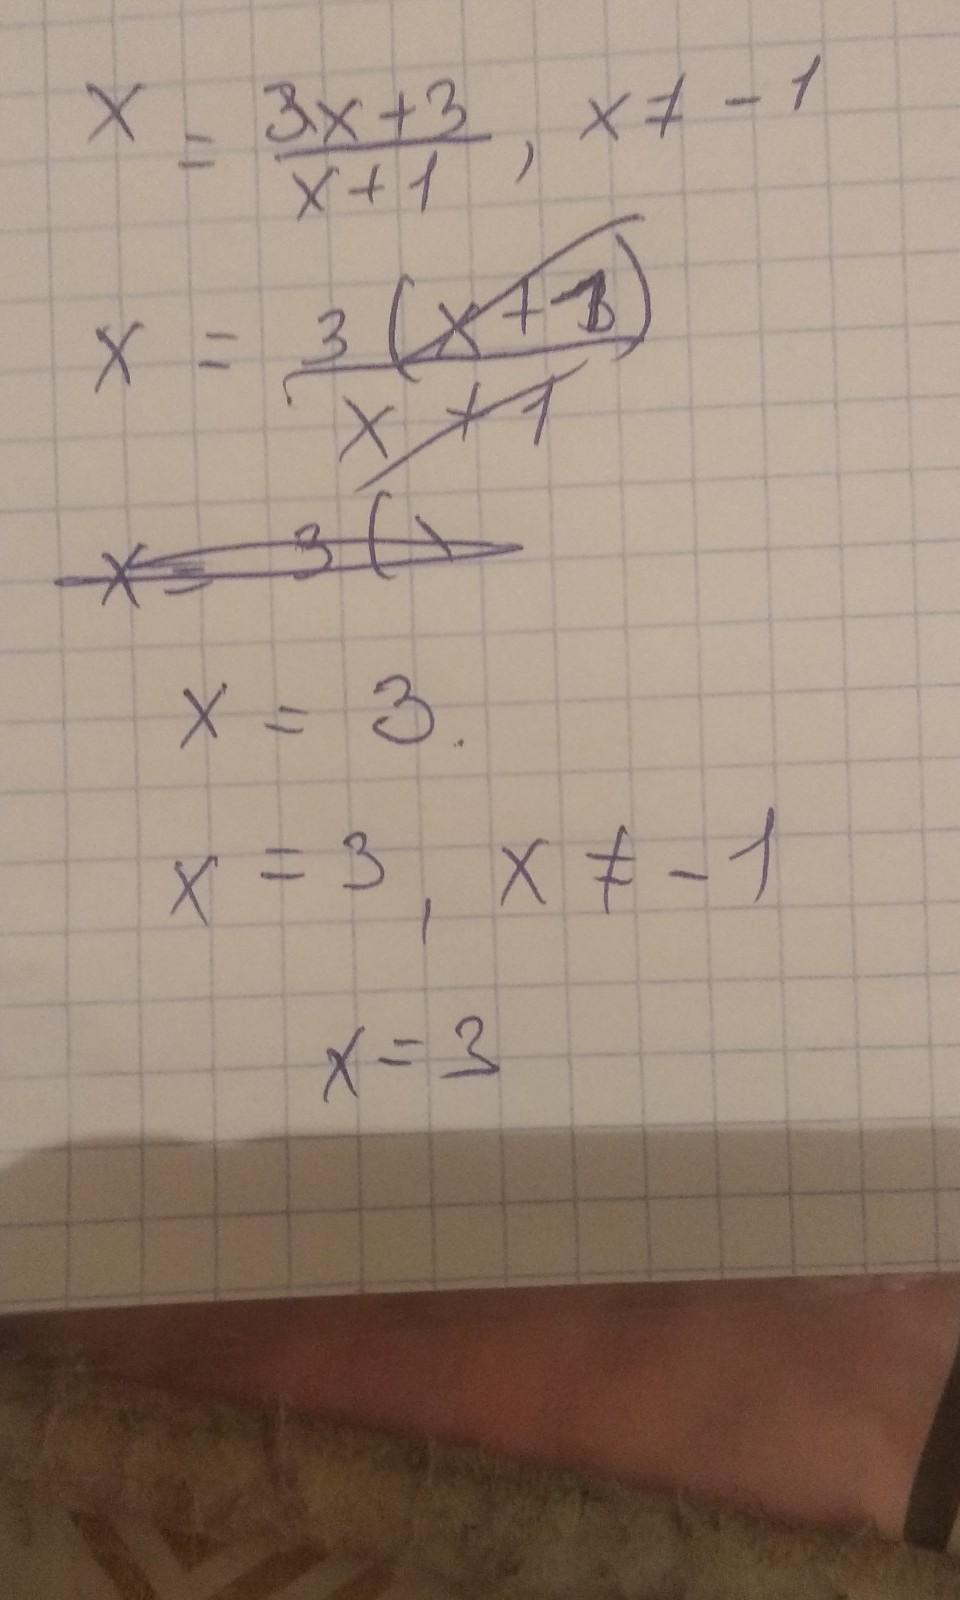 x = (3x+3)/(x+1), x ≠ -1
x = 3(x+1)/(x+1)
x = 3()
x = 3.
x = 3, x ≠ -1
x = 3